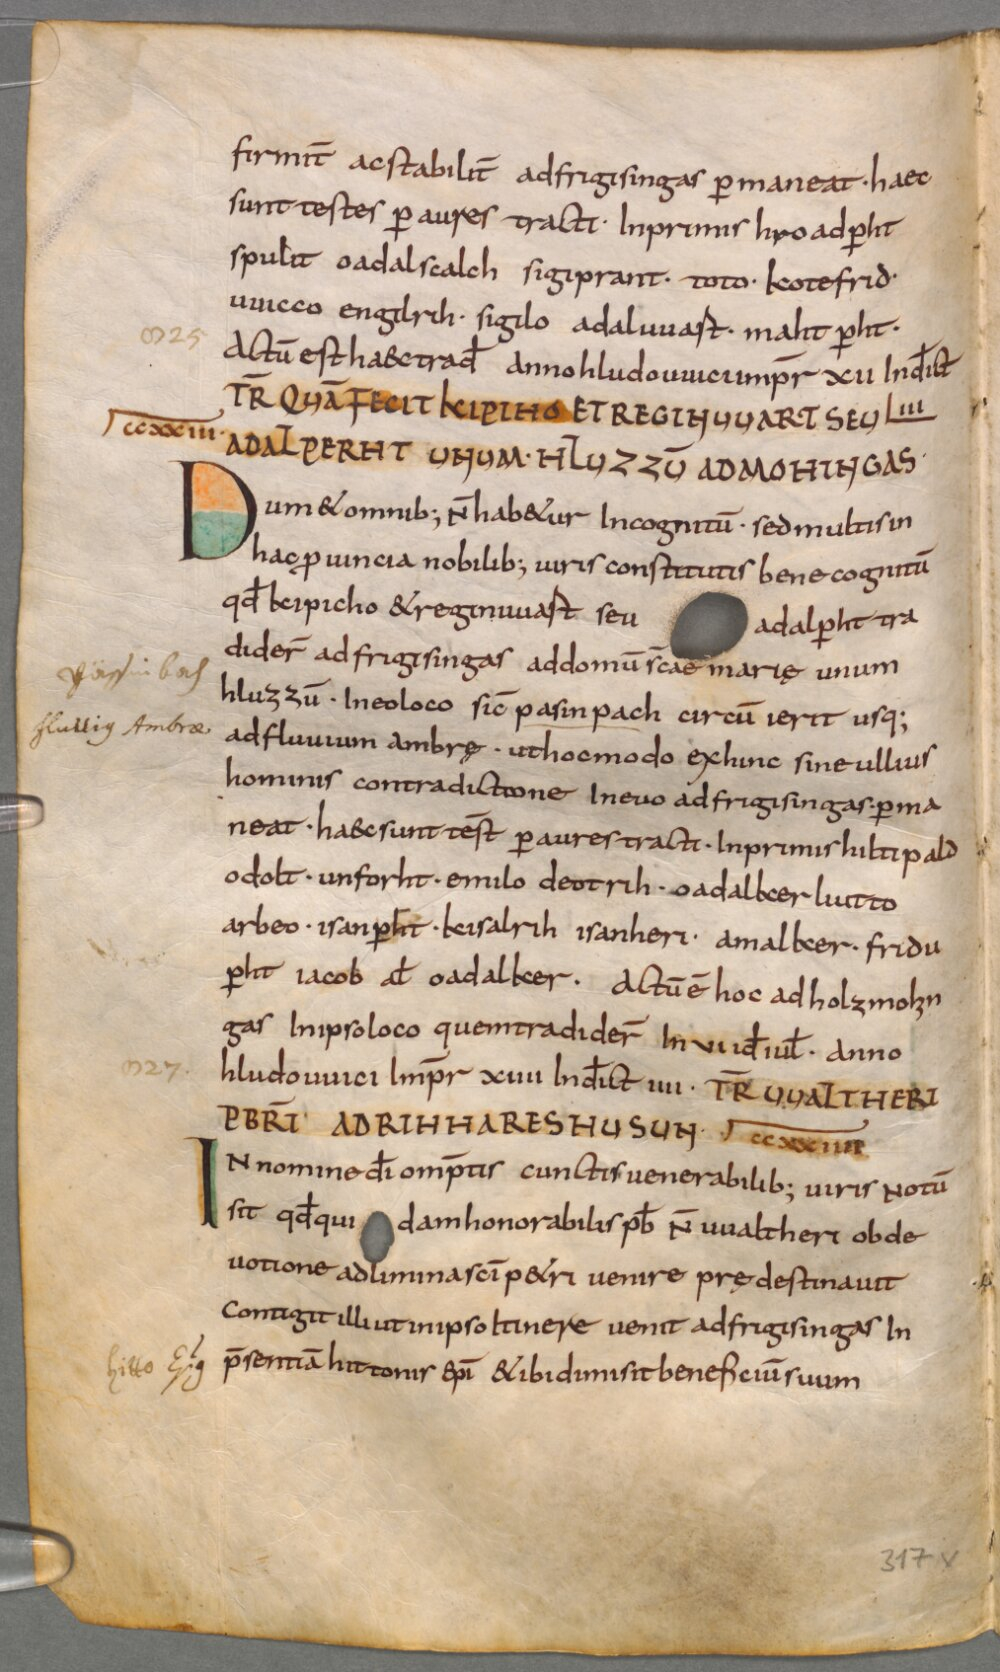 firmit̄ ac stabilit̄ ad frigisingas p̱maneat · haec
sunt testes p̱ aures tracti · Inprimis hroadp̱ht
spulit oadalscalch sigiprant · toto · kotefrid ·
uuicco engilrih · sigilo adaluuast · maht p̱ht ·
825
Actū est haec trad̄ Anno hludouuici imp̄r xii Ind̄ict
TR̄ QUĀ FECIT KIPIHO ET REGINUUART SEU iii
ccxxiii
ADALPERHT UNUM · HLUZZŪ AD MOHINGAS ·
Dum & omnib; N̄ hab&ur Incognitū · sed multis in
hac ꝓuincia nobilib; uiris constitutis bene cognitū
qd̄ kipicho & reginuuast seu adalp̱ht tra
dider̄ ad frigisingas ad domū sc̄ae marię unum
hluzzū · In eo loco sic̄ pasinpach circū ierit usq;
fluvius Ambrae
ad fluuium ambrę · ut hoc modo exhinc sine ullius
hominis contradictione In euo ad frigisingas · p̱ma
neat · haec sunt test̄ p̱ aures tracti · Inprimis hiltipald
odolt · unforht · emilo deotrih · oadalker liutto
arbeo · isanp̱ht · kisalrih isanheri · amalker · fridu
p̱ht iacob al̄ oadalker · Actū ē hoc ad holzmohin
gas In ipso loco quem tradider̄ In ui id̄ iul̄ · Anno
827.
hludouuici Imp̄r xiiii Ind̄ict iiii · TR̄ UUALTHERI
PBR̄I AD RIHHARESHUSUN · ccxxiiii
IN nomine dī omp̄tis cunctis uenerabilib; uiris Notū
sit qd̄ qui dam honorabilis pb̄ N̄ uualtheri ob de
uotione ad limina scī p&ri uenire prędestinauit
Contigit illi ut in ipso Itinere uenit ad frigisingas In
hitto
p̄sentiā hittonis ep̄i & ibi dimisit beneficiū suum
317 v